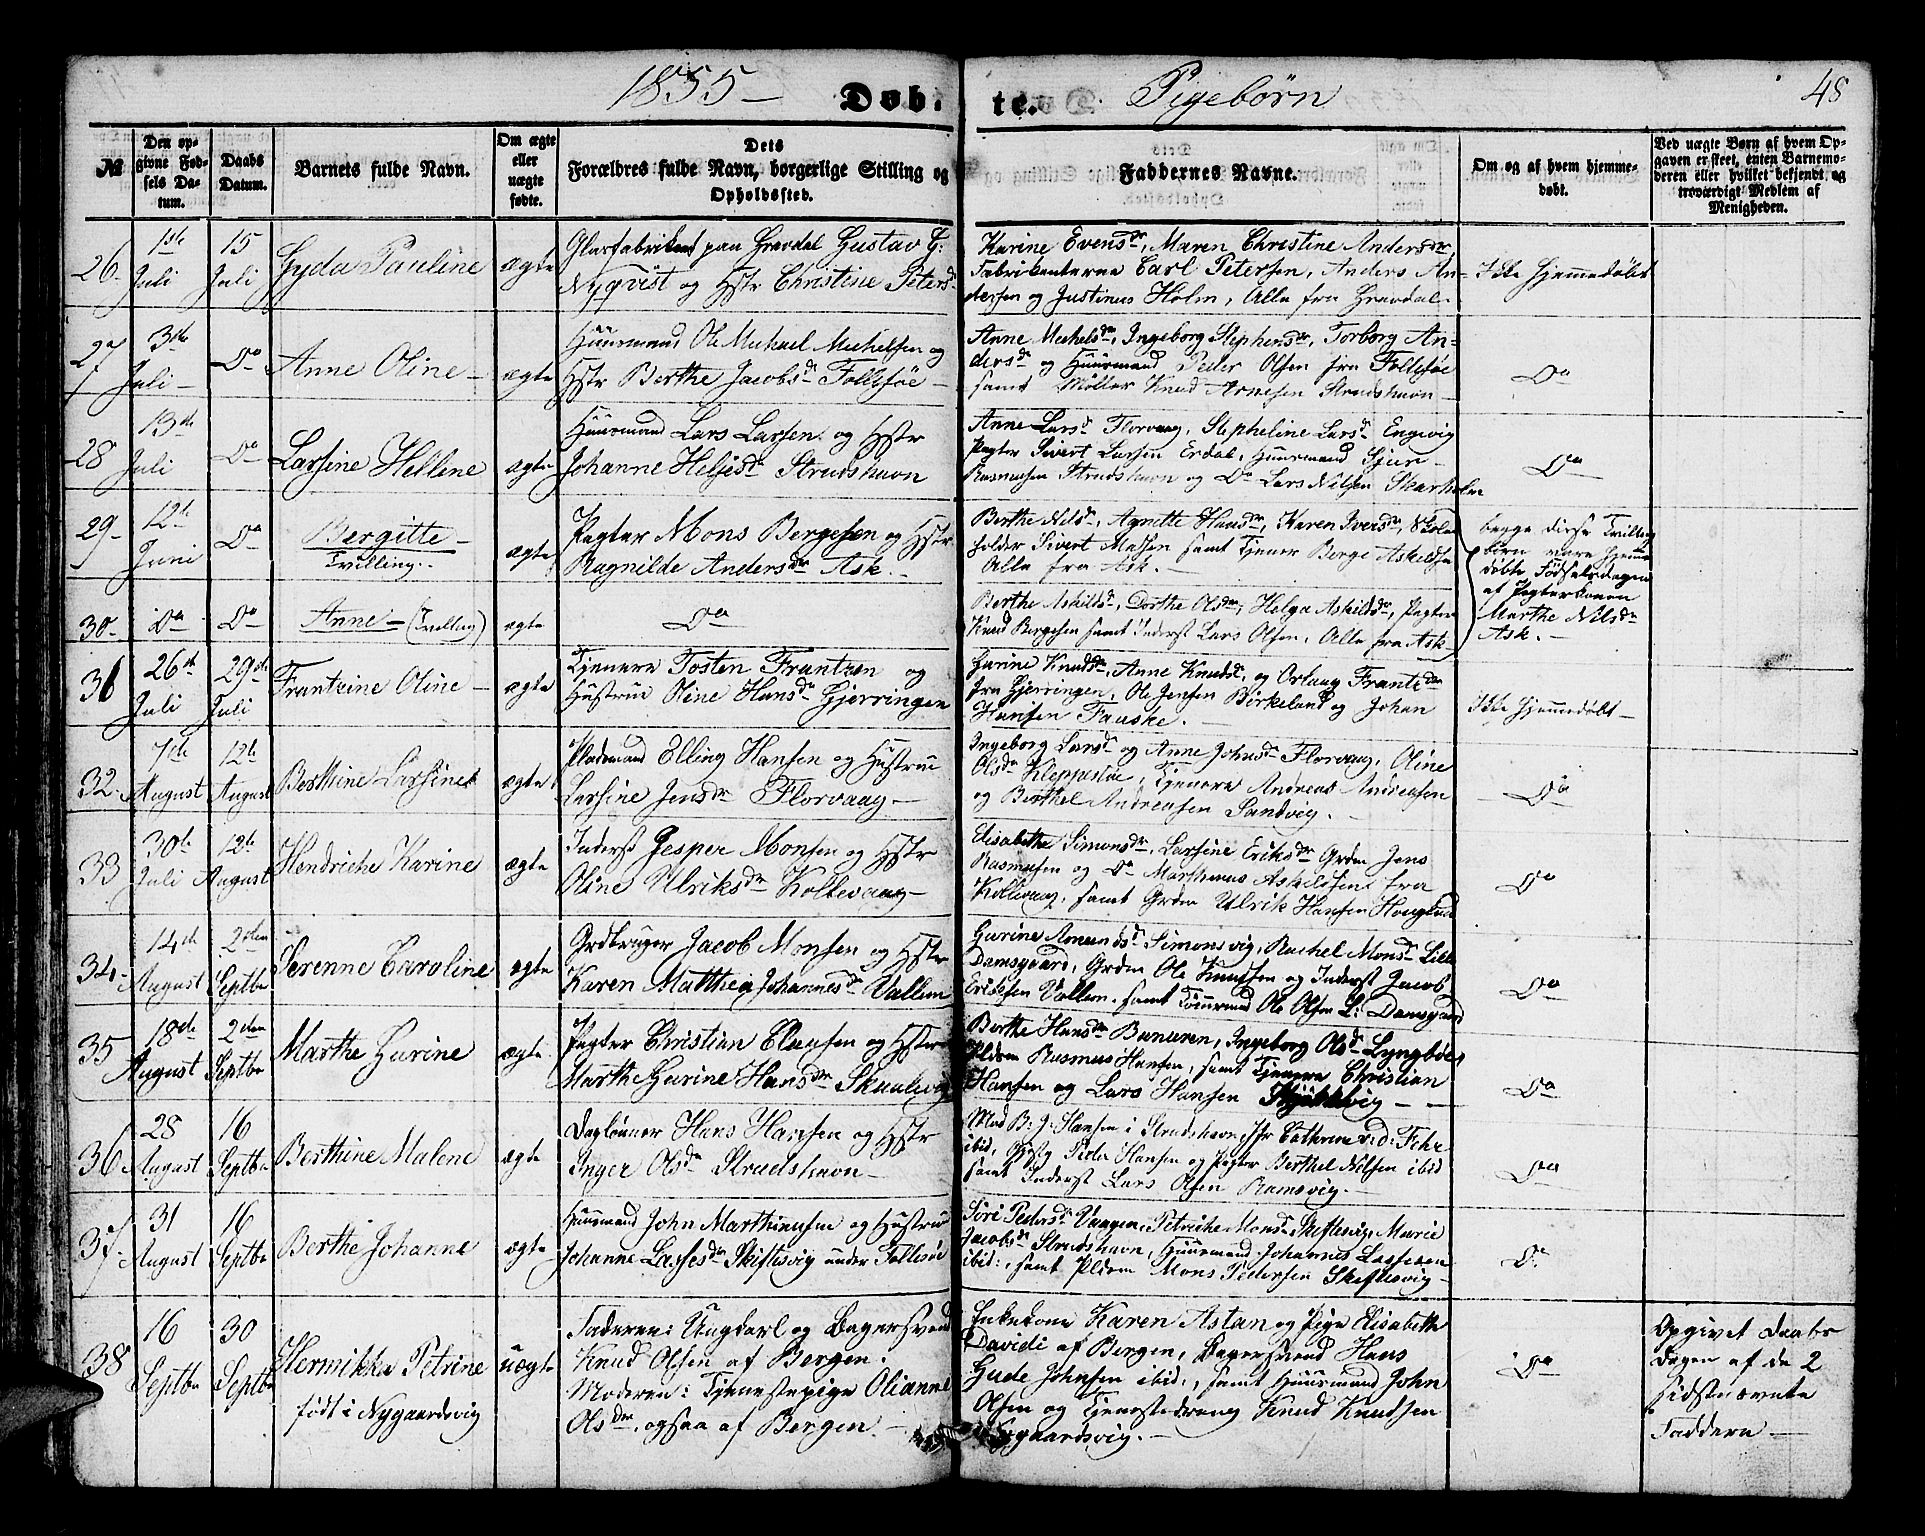 1855 — Døb- te. Pigebørn 48
№
Den op-
givne Fød-
sels Da-
tum.
Daabs
Datum.
Barnets fulde Navn.
Om ægte
eller
uægte
fødte.
Dets
Forældres fulde Navn, borgerlige Stilling og
Opholdssted.
Faddernes Navne.
Om og af hvem hjemme-
døbt.
Ved uægte Børn af hvem Op-
gaven er skeet, enten Barnemo-
deren eller hvilket bekjendt og
troværdigt Medlem af
Menigheden.
26.
1ste
Juli
15
Juli
Gyda Pauline
ægte
Glasfabrikant paa Gravdal Gustav G:
Nyqvist og Hstr Christine Petersdr
Karine Evensdr, Maren Christine Andersdr,
Fabrikanterne Carl Petersen, Anders An-
dersen og Justinus Holm, Alle fra Gravdal.
Ikke hjemmedøbt
27
3die
Juli —
Do
Anne Oline —
ægte
Huusmand Ole Michael Michelsen og
Hstr Berthe Jacobsdr Follesøe —
Anne Michelsdr, Ingeborg Stephensdr, Torborg An-
dersdr og Huusmand Peder Olsen fra Follesøe
samt Møller Knud Arnesen Strudshavn —
Do
28
13de
Juli
Do
Larsine Hellene
ægte
Huusmand Lars Larsen og Hstr
Johanne Heljesdr Strudshavn
Anne Larsdr Florvaag, Stepheline Larsdr Engevig
Pagter Sivert Larsen Erdal, Huusmand Sjur
Rasmusen Strudshavn og Do Lars Nilsen Skarholm
Do
29-
12te
Juni
Do
Bergitte —
Tvilling.
ægte
Pagter Mons Bergesen og Hstr
Ragnilde Andersdr Ask. —
Berthe Nilsdr, Agnette Hansdr, Karen Iversdr, Skole-
holder Sivert Madsen samt Tjener Berge Askildsen
Alle fra Ask. —
begge disse Tvilling
børn vare hjemme
døbte Fødselsdagen
af Pagterkonen
Marthe Nilsdr
Ask. —
30-
Do
Do
Anne — (Tvilling)
ægte
Do
Berthe Askildsdr, Dorthe Olsdr, Helga Askildsdr, Pagter
Knud Bergesen samt Inderst Lars Olsen, Alle fra Ask —
31
26de
Juli
29de
Juli
Frantzine Oline —
ægte
Tjenere Tosten Frantzen og
Hustrue Oline Hansdr Gjerringen
Gurine Knudsdr, Anne Knudsdr, og Orlaug Frantzdr
fra Gjerringen, Ole Jensen Birkeland og Johan
Hansen Fauske. —
Ikke hjemmedøbt —
32.
7de
August
12te
August
Berthine Larsine
ægte
Pladsmand Elling Hansen og Hustrue
Larsine Jensdr Florvaag —
Ingeborg Larsdr og Anne Johnsdr Florvaag, Oline
Olsdr Kleppestøe, Tjenere Andreas Andreasen
og Berthel Andreasen Sandvig.
Do
33
30te
Juli
12te
August
Hendriche Karine
ægte
Inderst Jesper Monsen og Hstr
Oline Ulriksdr Kollevaag —
Elisabethe Simonsdr, Larsine Eriksdr Grdm Jens
Rasmusen og Do Marthinus Askildsen fra
Kollevaag, samt Grdm Ulrik Hansen Hougland
Do
34-
14de
August
2den
Septbr
Serenne Caroline
ægte
Grdbruger Jacob Monsen og Hstr
Karen Matthea Johannesdr Vallem
Gurine Amundsdr Simonsvig, Rachel Monsdr Lille
Damsgaard, Grdm Ole Knudsen og Inderst Jacob
Eriksen Vallem. samt Tømrmd Ole Olsen L: Damsgaard
Do
35
18de
August
2den
Septbr
Marthe Gurine
ægte
Pagter Christian Clausen og Hstr
Marthe Gurine Hansdr Skaalevig
Berthe Hansdr Buneren, Ingeborg Olsdr Lyngbøe
Pldsm Rasmus Hansen, samt Tjenere Christian
Hansen og Lars Hansen
Do
36
28
August
16
Septbr
Berthine Malene
ægte
Daglønner Hans Hansen og Hstr
Inger Olsdr Strudshavn —
Mad B. J. Hansen i Strudshavn, Jfr Cathrine v:d: Fehr
ibid, Peder Hansen og Pagter Berthel Nilsen ibid
samt Inderst Lars Olsen Ramsvig. —
Do
37-
31
August
16
Septbr
Berthe Johanne
ægte
Huusmand John Marthinusen og Hustrue
Johanne Lassesdr Skiftesvig under Follesøe
Siri Pedersdr Vaagen, Petriche Monsdr Skiftesvig, Marie
Jacobsdr Strudshavn, Huusmand Johannes Lassesen
ibid:, samt Pldsm Mons Pedersen Skiftesvig —
Do
38
16
Septbr
30
Septbr
Hermikka Petrine
født i Nygaardsvig
uægte
Faderen: Ungkarl og Bagersvend
Knud Olsen af Bergen.
Moderen: Tjenestepige Olianne
Olsdr, ogsaa af Bergen. —
Enkekone Karen Astan og Pige Elisabethe
Davidi af Bergen, Bagersvend Hans
Gude Johnsen ibid:, samt Huusmand John
Olsen og Tjenestedreng Knud Knudsen
Nygaardsvig. —
Do
Opgivet Daabs
dagen af de 2
sidstnævnte
Faddere —